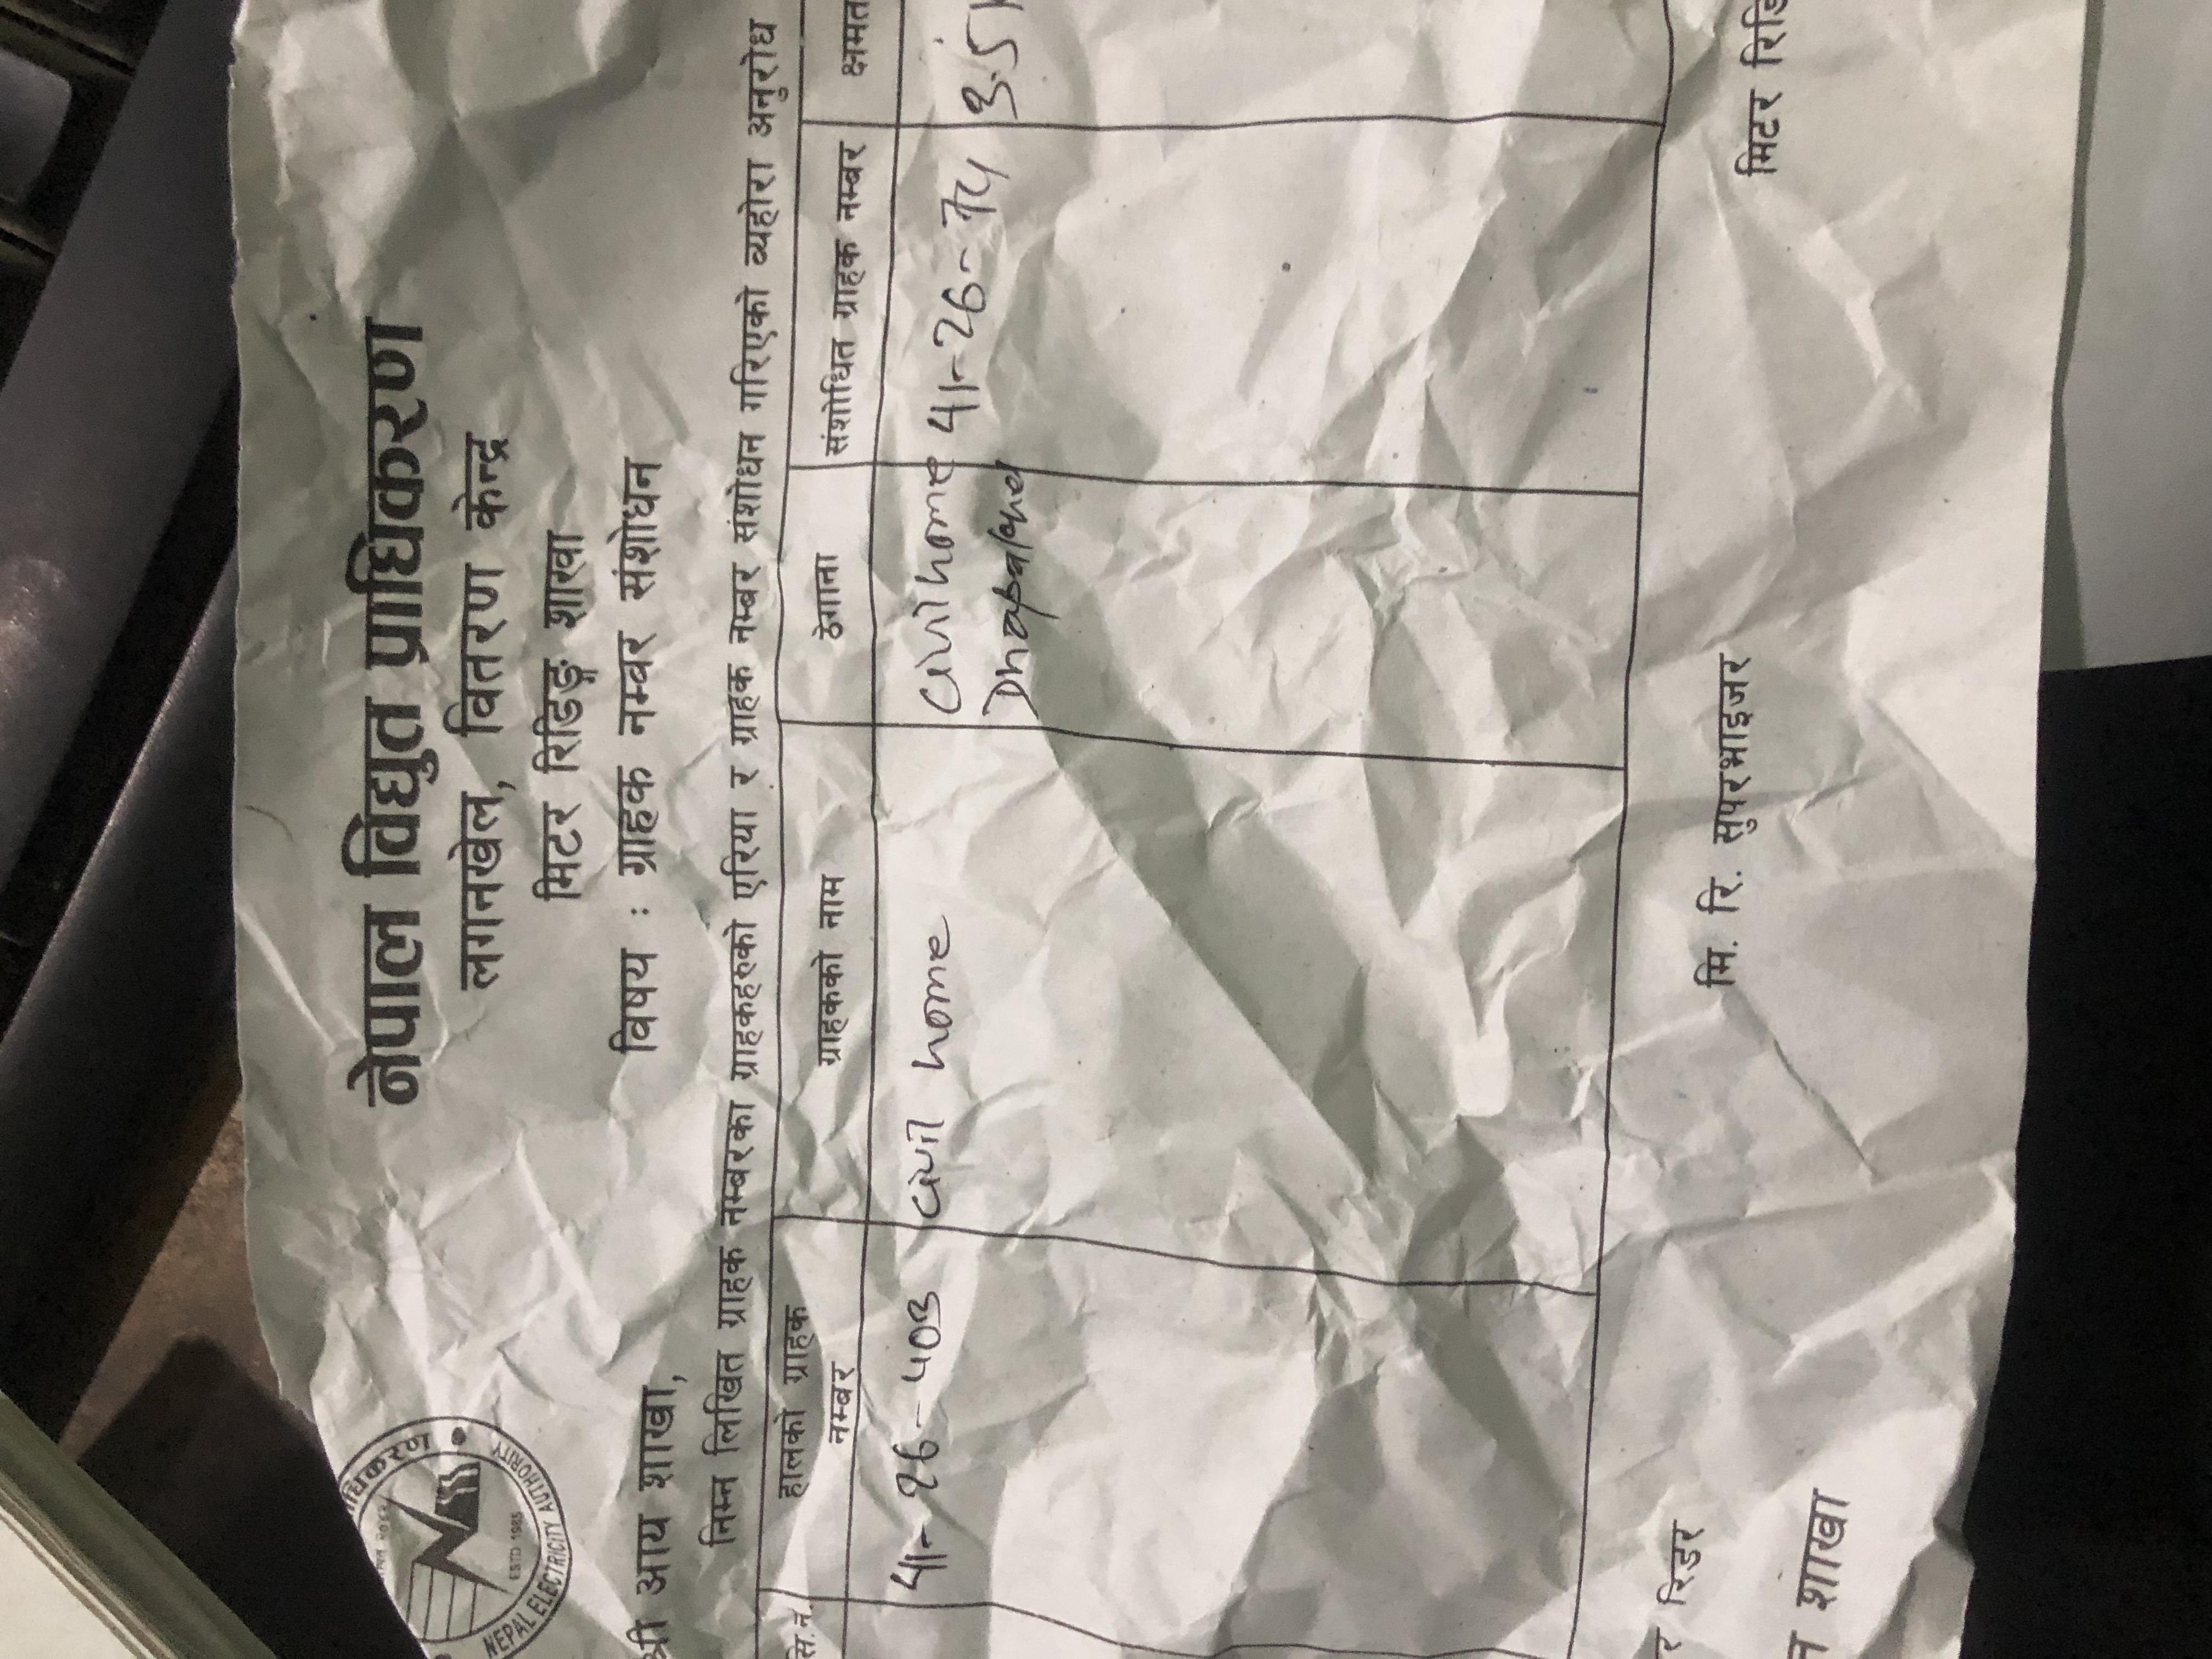 नेपाल विद्युत प्राधिकरण
NEPAL ELECTRICITY AUTHORITY
ESTD 1985
लगनखेल, वितरण केन्द्र
मिटर रिडिङ्ग शाखा
विषय : ग्राहक नम्बर संशोधन
श्री आय शाखा,
निम्न लिखित ग्राहक नम्बरका ग्राहकहरुको एरिया र ग्राहक नम्बर संशोधन गरिएको व्यहोरा अनुरोध
सि.न. हालको ग्राहक नम्बर ग्राहकको नाम ठेगाना संशोधित ग्राहक नम्बर क्षमत
41-26-403 civil home civil home 41-26-74 3.51
Dhapakhel
र रिडर
मि. रि. सुपरभाइजर
मिटर रिडि
न शाखा